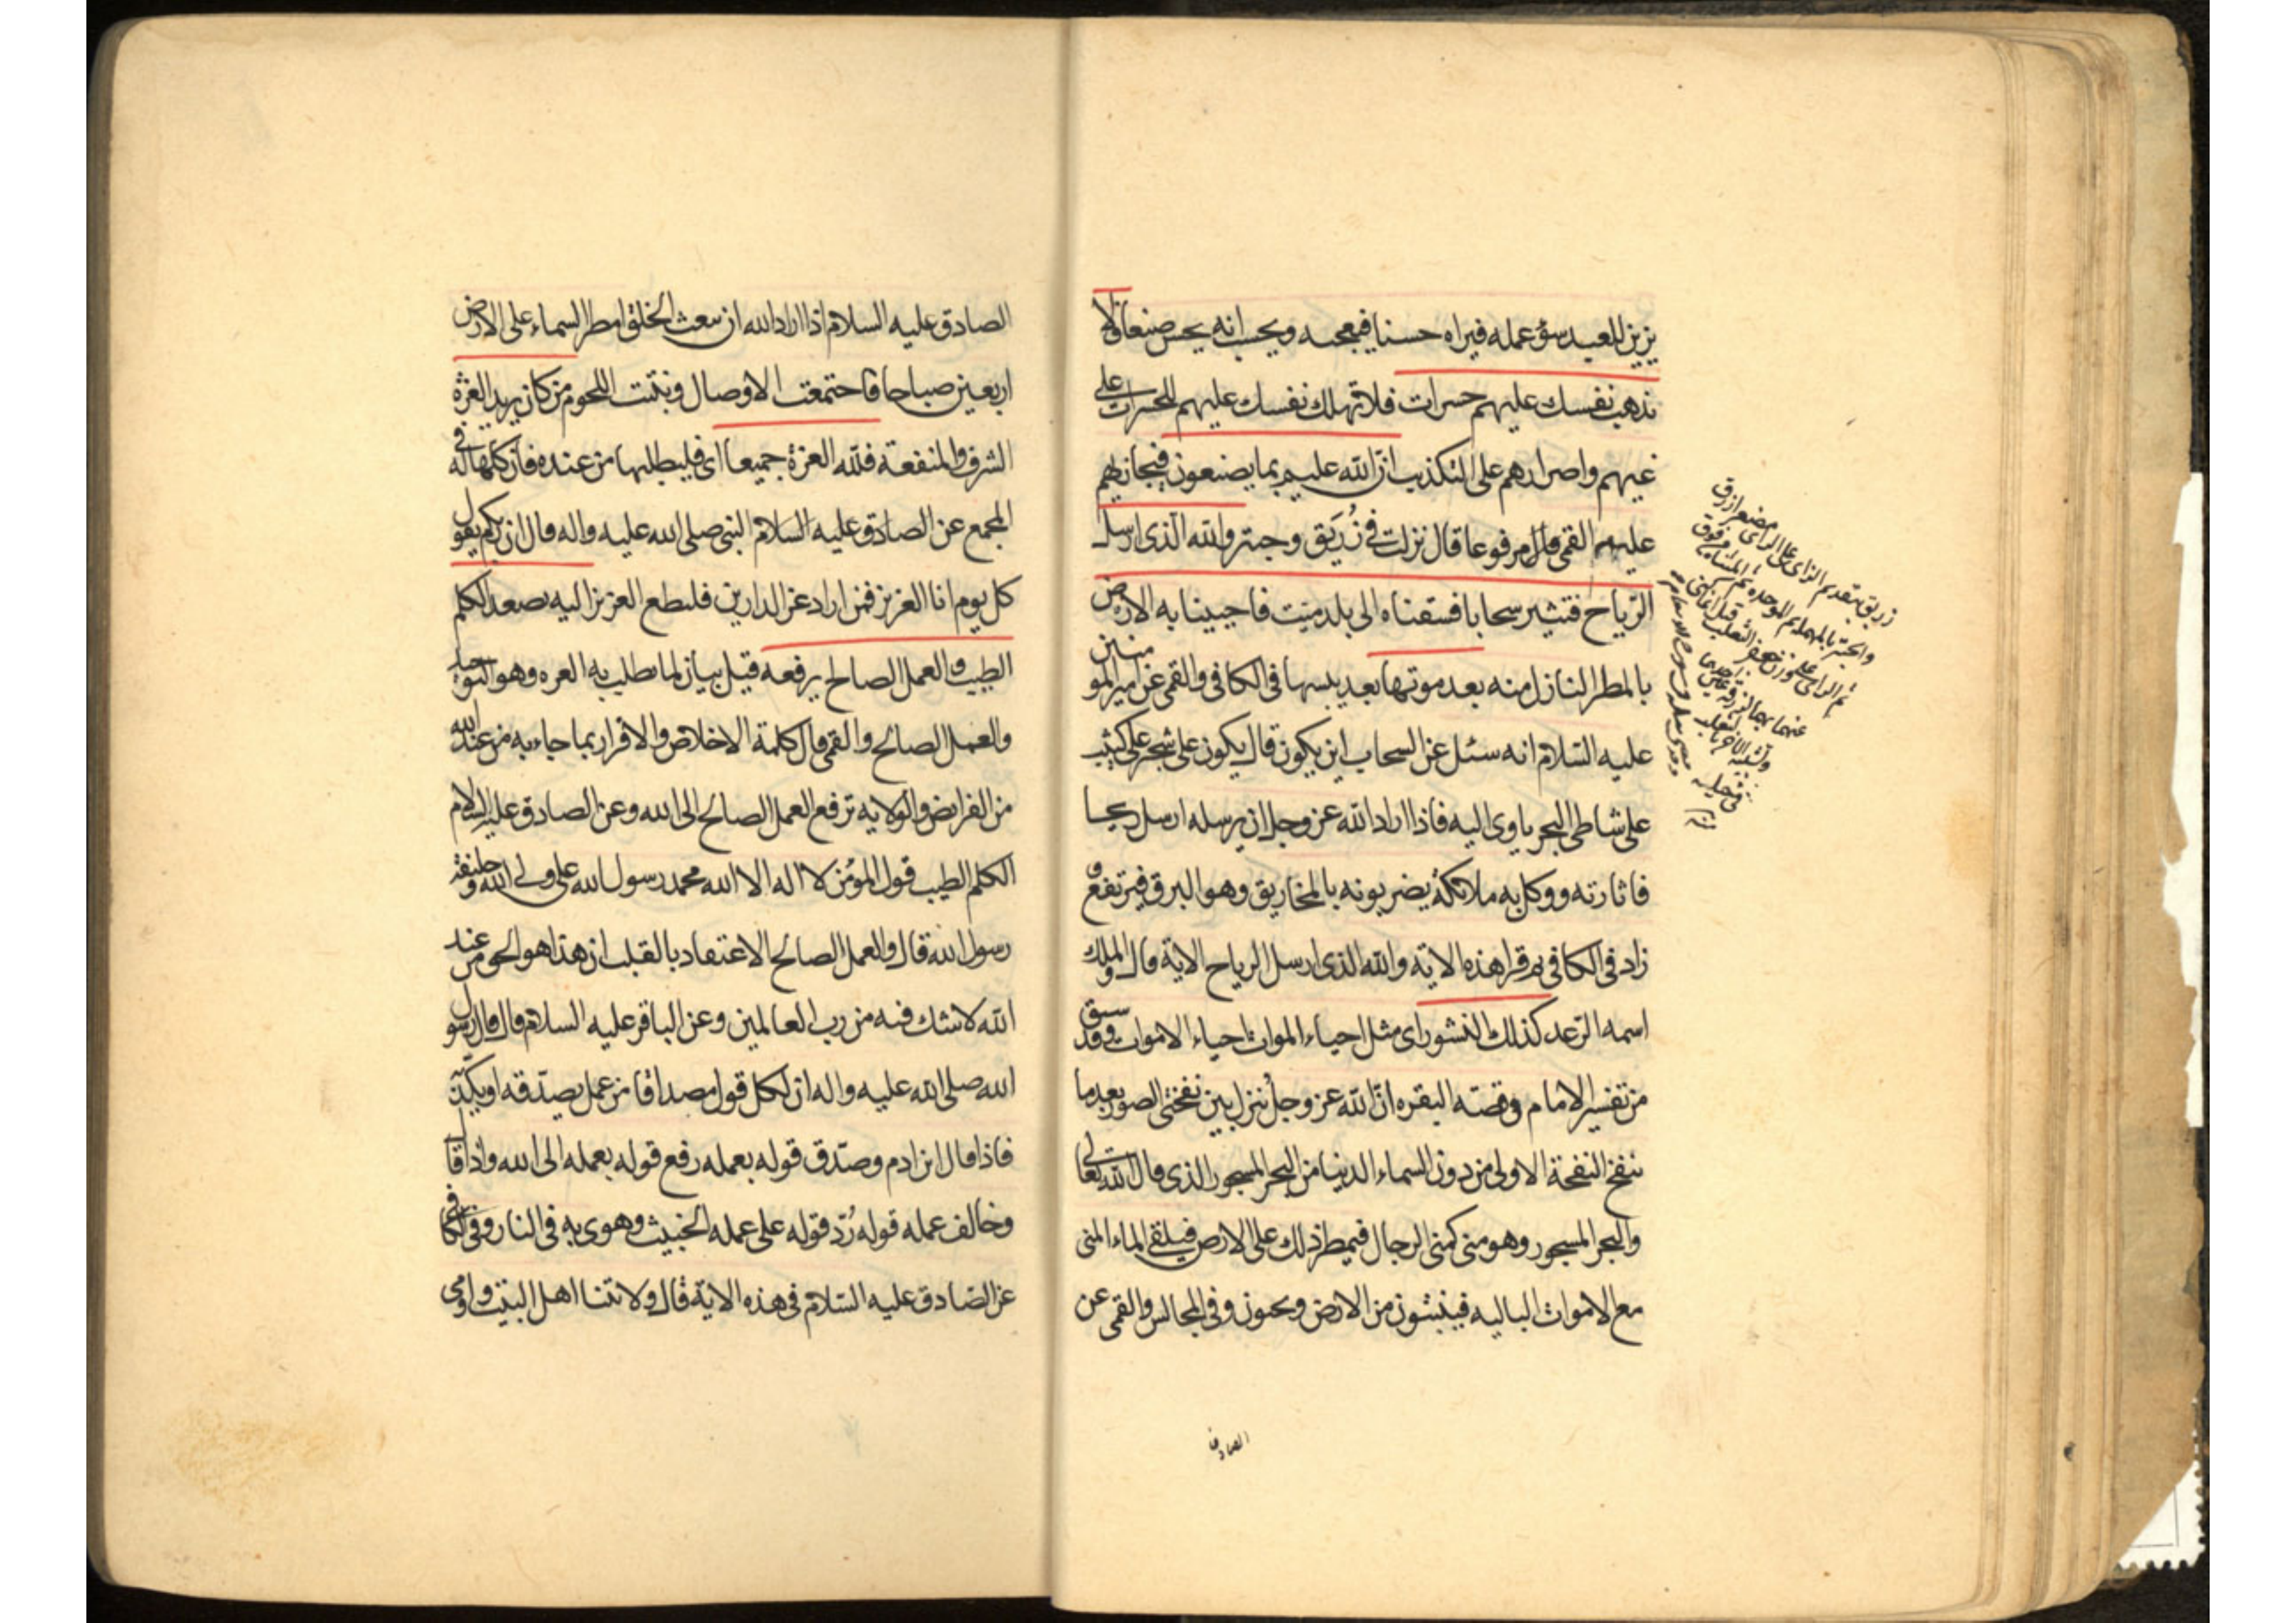 يزين للعبد سؤ عمله فيراه حسنا فيعجبه ويحسب انه يحسن صنعا فلا
تذهب نفسك عليهم حسرات فلا تهلك نفسك عليهم للحسرات على
غيهم واصرارهم على التكذيب ان الله عليم بما يصنعون فيجازيهم
عليهم القمى قال مرفوعا قال نزلت فى زُرَيق وحبتر والله الذى ارسل
الرّياح فتثير سحابا فسقناه الى بلد ميت فاحيينا به الارض
بالمطر النازل منه بعد موتها بعد يبسها فى الكافى والقمى عن امير المومنين
عليه السّلام انه سئل عن السحاب اين يكون قال يكون على شجر على كثيب
على شاطى البحر ياوى اليه فاذا اراد الله عز وجل ان يرسله ارسل ريحا
فاثارته ووكل به ملائكة يضربونه بالمخاريق وهو البرق فيرتفع و
زاد فى الكافى ثم قرا هذه الاية والله الذى ارسل الرياح الاية قال والملك
اسمه الرّعد كذلك النشور اى مثل احياء الموات احياء الاموات وقد سبق
من تفسير الامام فى قصة البقره انّ الله عز وجل ينزل بين نفختى الصور بعد ما
ينفخ النفخة الاولى من دون السماء الدنيا من البحر المسجور الذى قال الله تعالى
والبحر المسجور وهو منى كمنى الرجال فيمطر ذلك على الارض فيلقى الماء المنى
مع الاموات الباليه فينبتون من الارض ويحيون وفى المجالس والقمى عن
الصادق
زريق بتقديم الزاى على الراى مصغر ازرق
والحبتر بالمهملة ثم الموحده ثم المثناه من فوق
ثم الراى على وزن جعفر الثعلب
الصادق عليه السلام اذا اراد الله ان يبعث الخلق امطر السماء على الارض
اربعين صباحا فاجتمعت الاوصال ونبتت اللحوم من كان يريد العزّة
الشرف والمنفعة فللّه العزة جميعا اى فليطلبها من عنده فان كلها له فى
المجمع عن الصادق عليه السلام النبى صلى الله عليه واله قال ان ربكم يقول
كل يوم انا العزيز فمن اراد عز الدارين فليطع العزيز اليه يصعد الكلم
الطيب والعمل الصالح يرفعه قيل بيان لما يطلب به العزه وهو التوحيد
والعمل الصالح والقمى قال كلمة الاخلاص والاقرار بما جاء به من عند الله
من الفرايض والولايه ترفع العمل الصالح الى الله وعن الصادق عليه السلام
الكلم الطيب قول المؤمن لا اله الا الله محمد رسول الله على ولى الله وخليفة
رسول الله قال والعمل الصالح الاعتقاد بالقلب ان هذا هو الحق من عند
الله لا شك فيه من رب العالمين وعن الباقر عليه السلام قال قال رسول
الله صلى الله عليه واله ان لكل قول مصداقا من عمل يصدّقه او يكذّبه
فاذا قال ابن ادم وصدّق قوله بعمله رفع قوله بعمله الى الله واذا قال
وخالف عمله قوله رُدّ قوله على عمله الخبيث وهوى به فى النار وفى الكافى
عن الصّادق عليه السّلام فى هذه الاية قال ولايتنا اهل البيت واومى